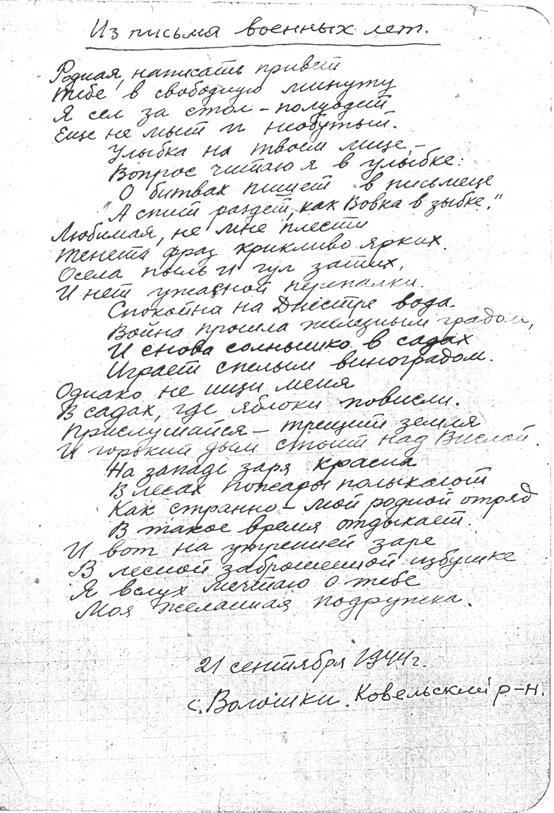 Из письма военных лет.
Родная, написать привет
Тебе в свободную минуту
Я сел за стол – полуодет
Еще не мыт и необутый.
Улыбка на твоем лице, –
Вопрос читаю я в улыбке:
О битвах пишет в письмеце
"А спит раздет, как Вовка в зыбке."
Любимая, не мне плести
фраз крикливо ярких.
Осела пыль и гул затих,
И нет ужасной перепалки.
Спокойна на Днестре вода
Война прошла железным градом,
И снова солнышко в садах
Играет спелым виноградом.
Однако не ищи меня
В садах, где яблоки повисли.
Прислушайся – трещит земля
И горький дым стоит над Вислой.
На западе заря красна
В лесах пожары полыхают
Как странно – мой родной отряд
В такое время отдыхает.
И вот на утренней заре
В лесной заброшенной избушке
Я вслух мечтаю о тебе
Моя желанная подружка.
21 сентября 1944 г.
с. Волошки. Ковельский р-н.